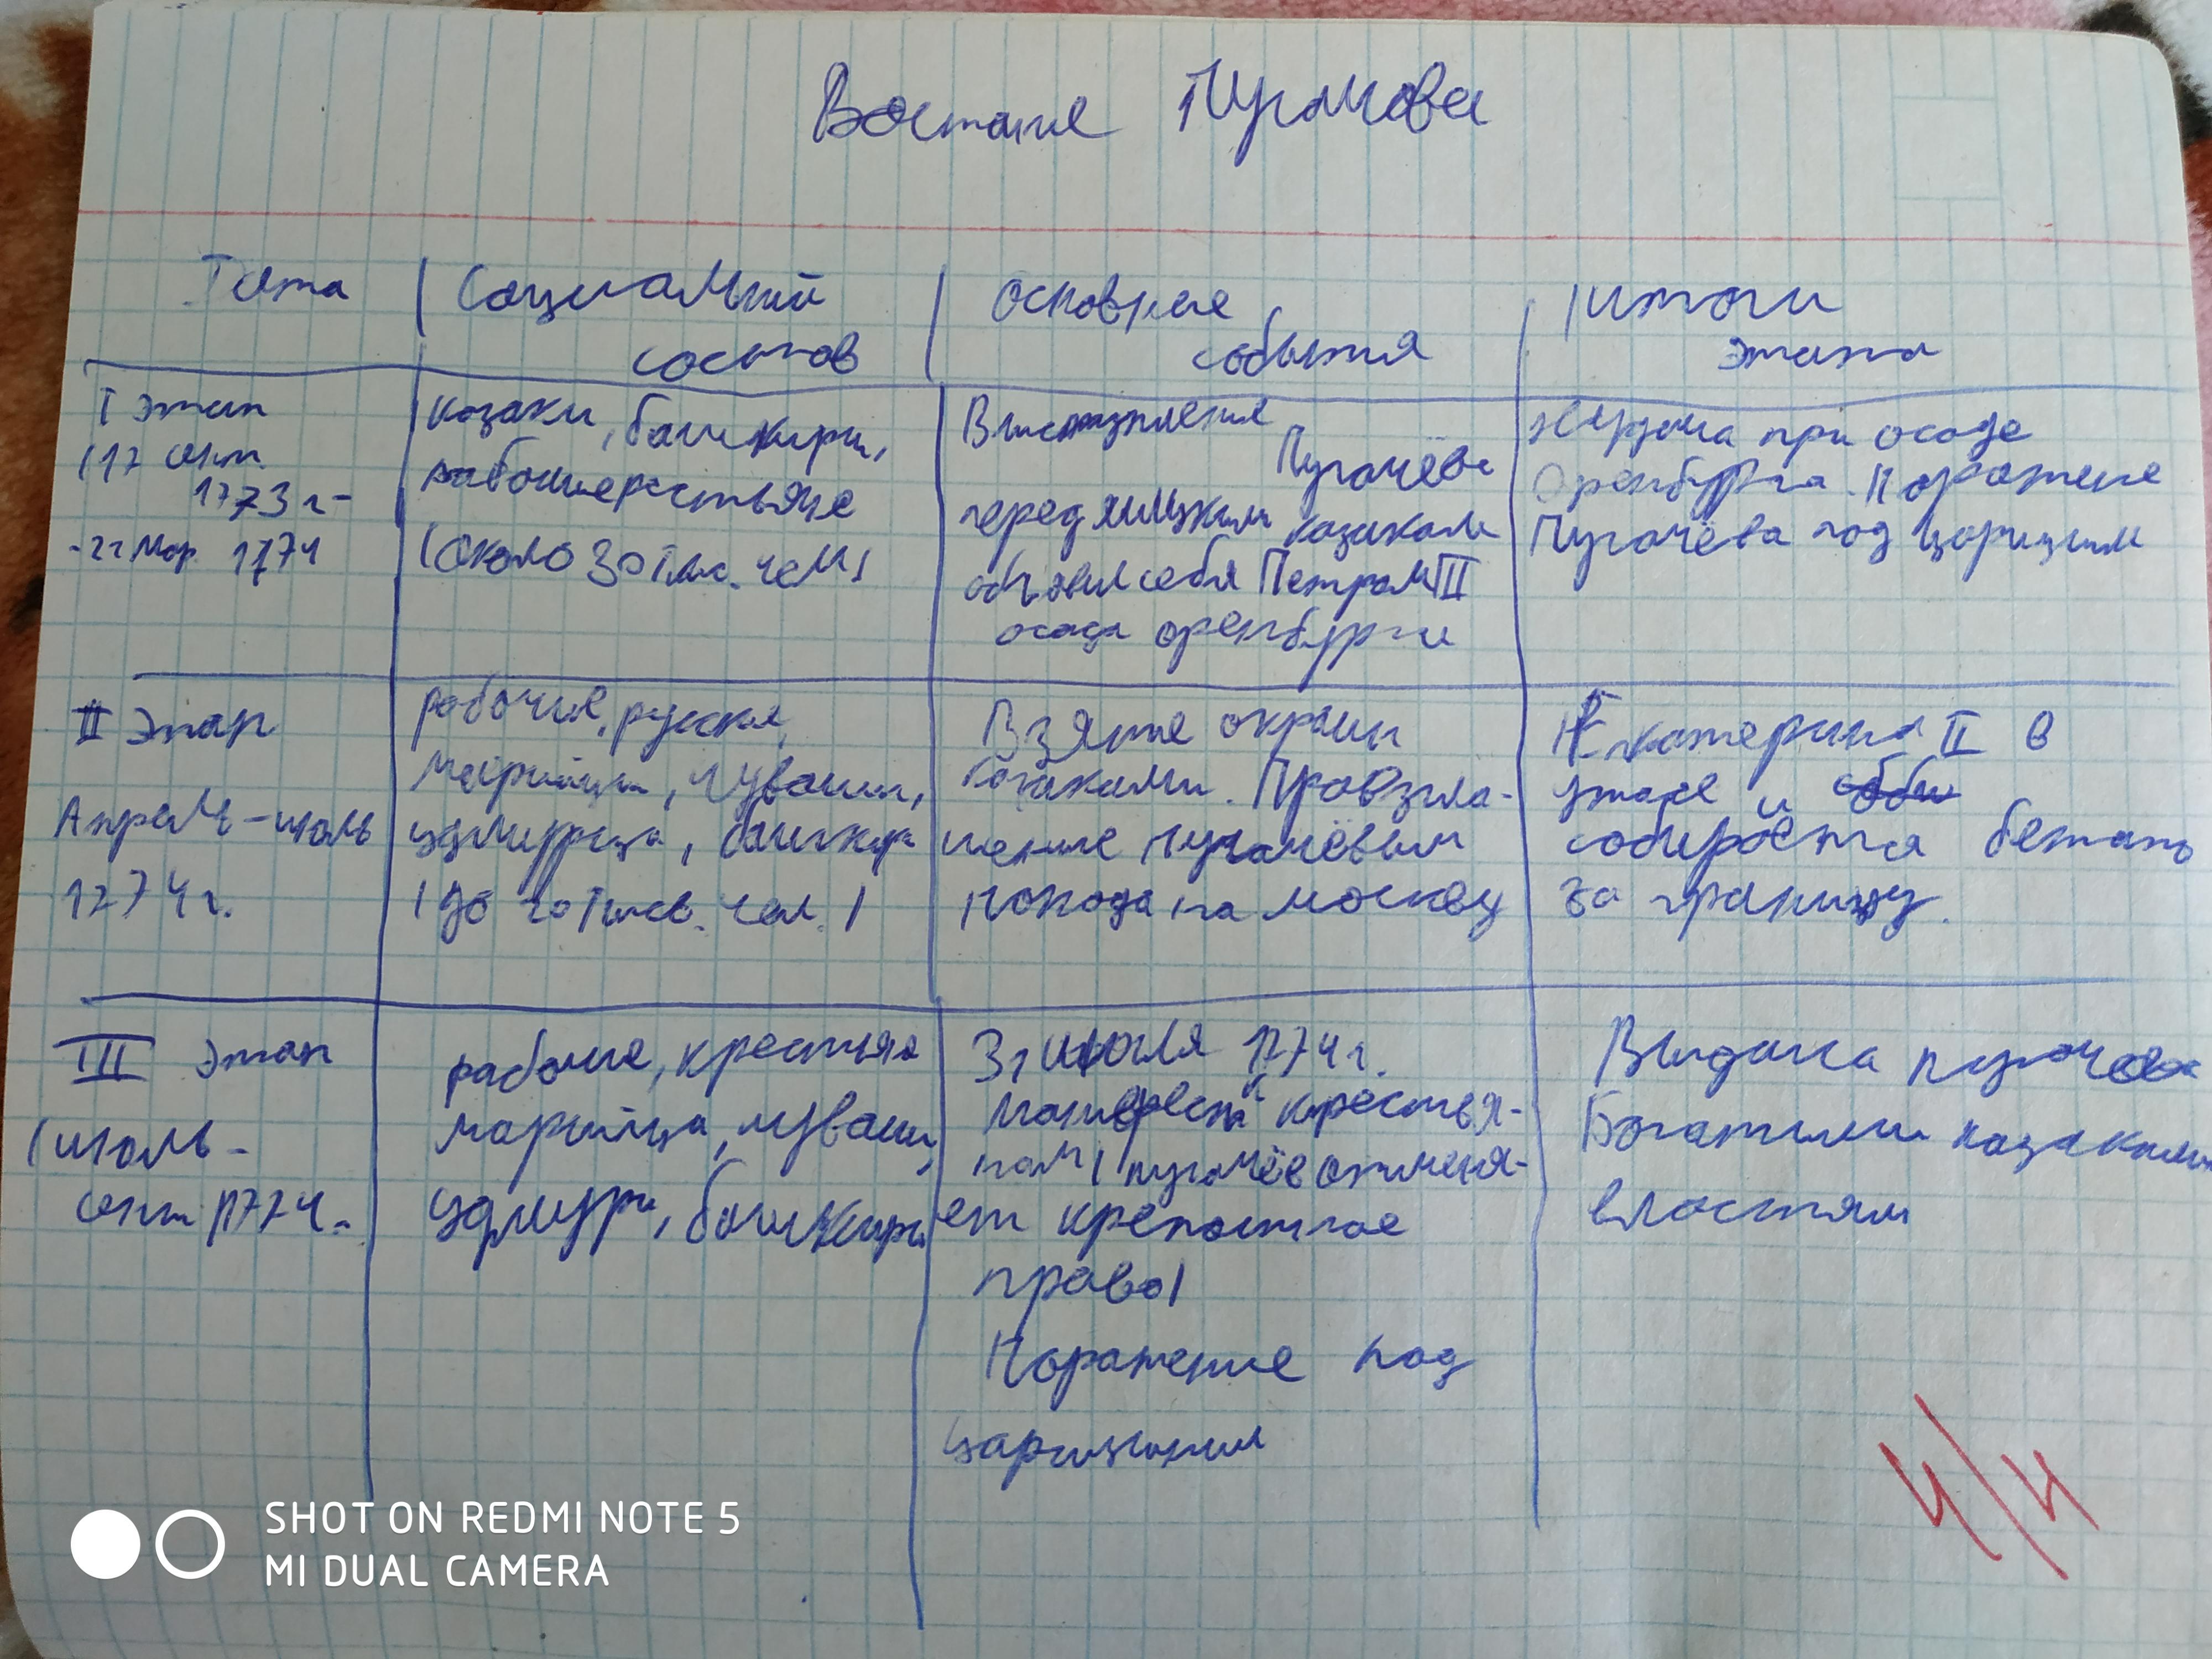 Востание Пугачова
Дата
Социальный
состав
Основные
события
итоги
этапа
I этап
(17 сент.
1773 г-
-22 мар. 1774
казаки, башкиры,
рабочие
(около 30 тыс. чел)
Выступления
Пугачёва
перед яицким казакам
объявил себя Петром III
осада оренбурга
Неудача при осаде
Оренбурга. Поражение
Пугачёва под царицым
II этап
Апрель-июль
1774 г.
рабочие, русские,
марийцы, чуваши,
удмурты, башкиры
(до 20 тысь. чел.)
Взятие
казаками. Провзгла-
шение пугачёвым
похода на москву
Екатерина II в
ужасе и
собирается бежать
за границу.
III этап
(июль-
сент 1774.
рабочие, крестьяне
марийца, чуваши,
удмурты, башкиры
31 июля 1774 г.
манифест к крестья-
нам (пугачёв отменя-
ет крепостное
право)
Поражение под
царицыным
Выдача пугачова
Богатыми казаками
властям
4/4
SHOT ON REDMI NOTE 5
MI DUAL CAMERA